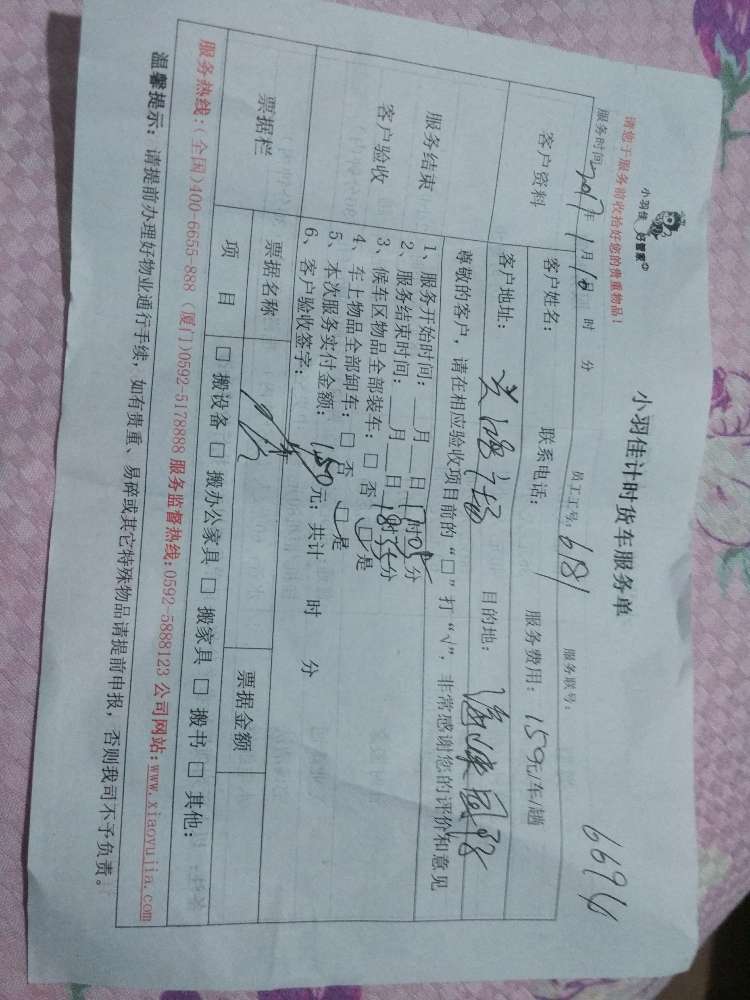 小羽佳 好管家
小羽佳计时货车服务单
请您于服务前收拾好您的贵重物品！
服务时间 2017年 1月 10日 时 分 员工工号：681 服务联号：6694
客户资料
客户姓名： 联系电话： 服务费用：150元/车/趟
客户地址： 广场 目的地：
服务结束
客户验收
尊敬的客户，请在相应验收项目前的“□”打“√”，非常感谢您的评价和意见
1、服务开始时间： 月 日 17时05分
2、服务结束时间： 月 日 18时35分
3、候车区物品全部装车：□ 否 □ 是
4、车上物品全部卸车：□ 否 □ 是
5、本次服务实付金额：150元；共计 时 分
6、客户验收签字：
票据栏 票据名称 票据金额
项 目 □ 搬设备 □ 搬办公家具 □ 搬家具 □ 搬书 □ 其他：
服务热线：（全国）400-6655-888 （厦门）0592-5178888 服务监督热线：0592-5888123 公司网站：www.xiaoyujia.com
温馨提示：请提前办理好物业通行手续，如有贵重、易碎或其它特殊物品请提前申报，否则我司不予负责。